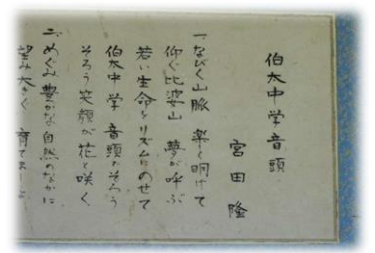 伯太中学音頭
宮田 隆
一、なびく山脈 楽し明けて
仰ぐ比婆山 夢が呼ぶ
若い生命をリズムにのせて
伯太中学 音頭でそろう
そろう笑顔が花と咲く
二、めぐみ豊かな自然のなかに
望み大きく 育てましょ